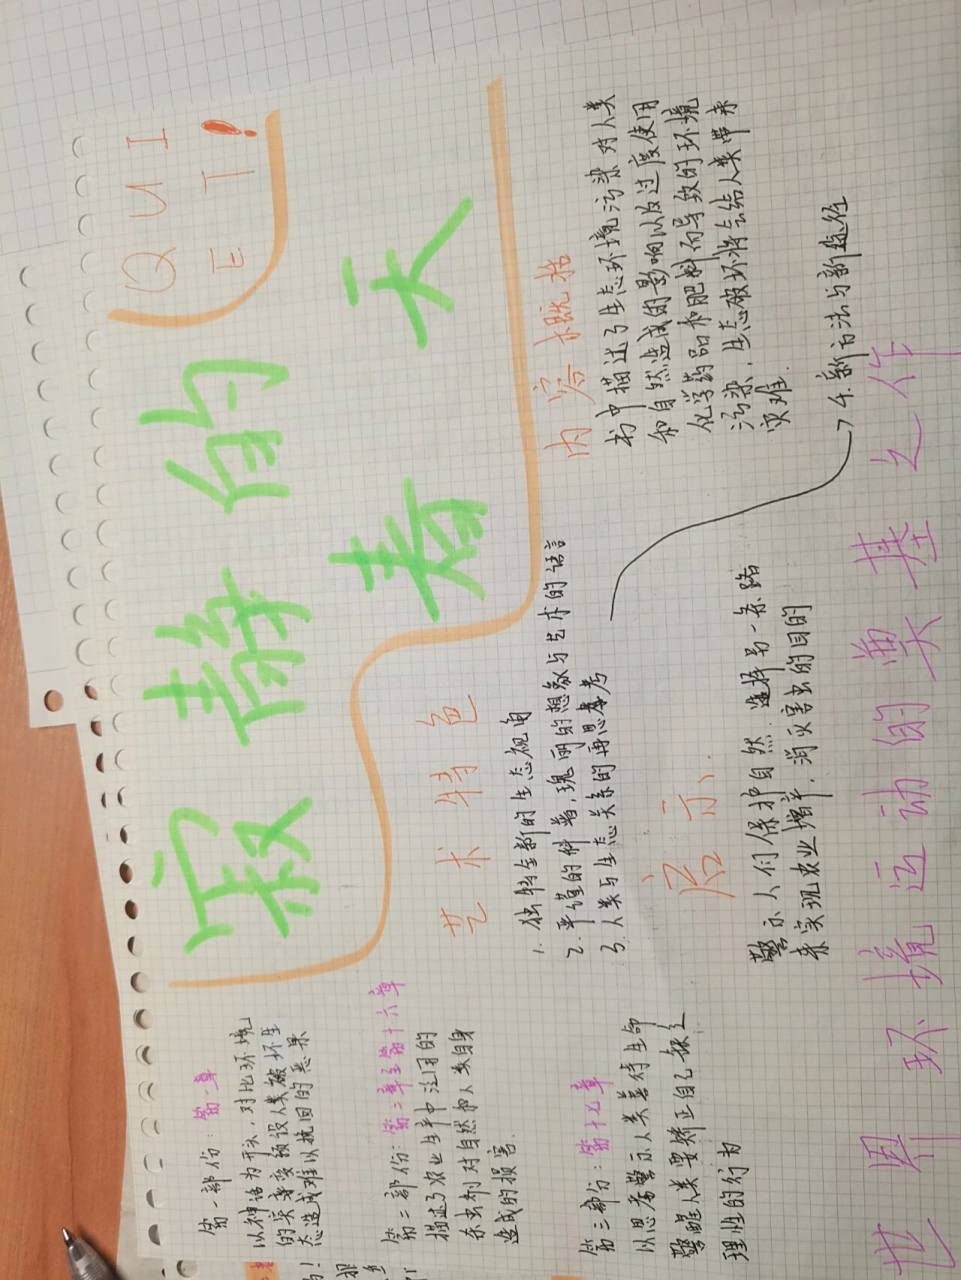 寂静的
春天
QUI
ET!
第一部份：第一章
以神话为开头，对比环境
的突变预设人类破坏生
态造成难以挽回的恶果
第二部份：第二章至第十六章
描述了农业生产中泛用的
杀虫剂对自然和人类自身
造成的损害.
第三部份：第十七章
以思考警示人类善待生命
警醒人类要矫正自己
理性的行为
艺术特色
1. 独特全新的生态视角
2. 严谨的科普，瑰丽的想象与艺术的语言
3. 人类与生态关系的再思考
4. 新方法与新途径
内容概括
书中描述了生态环境污染对人类
和自然造成的影响以及过度使用
化学药品和肥料而导致的环境
污染，生态破坏将会给人类带来
灾难.
启示.
警示人们保护自然.选择另一条路
来实现农业增产，消灭害虫的目的
世界环境运动的奠基之作